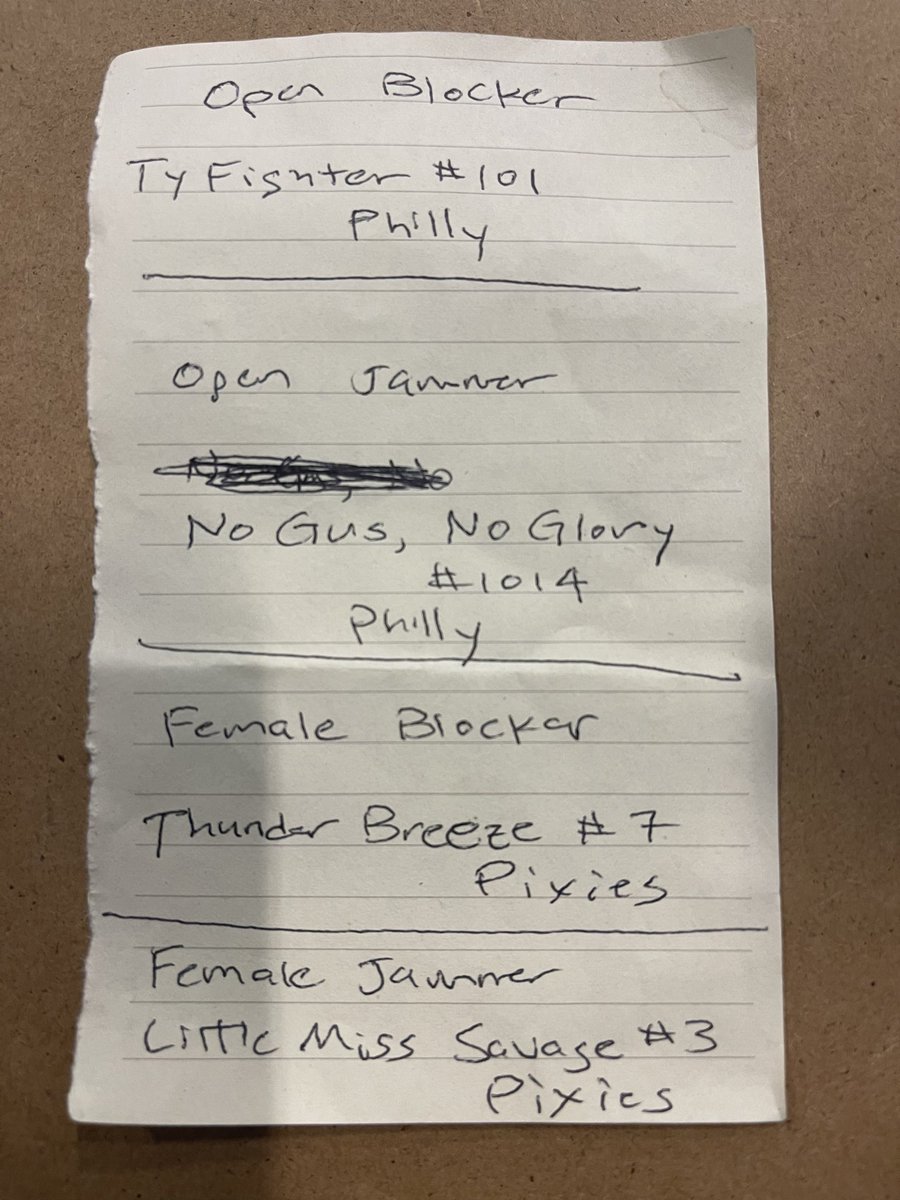 Open Blocker
Ty Fighter #101
Philly
Open Jammer
No Gus, No Glory
#1014
Philly
Female Blocker
Thunder Breeze #7
Pixies
Female Jammer
Little Miss Savage #3
Pixies